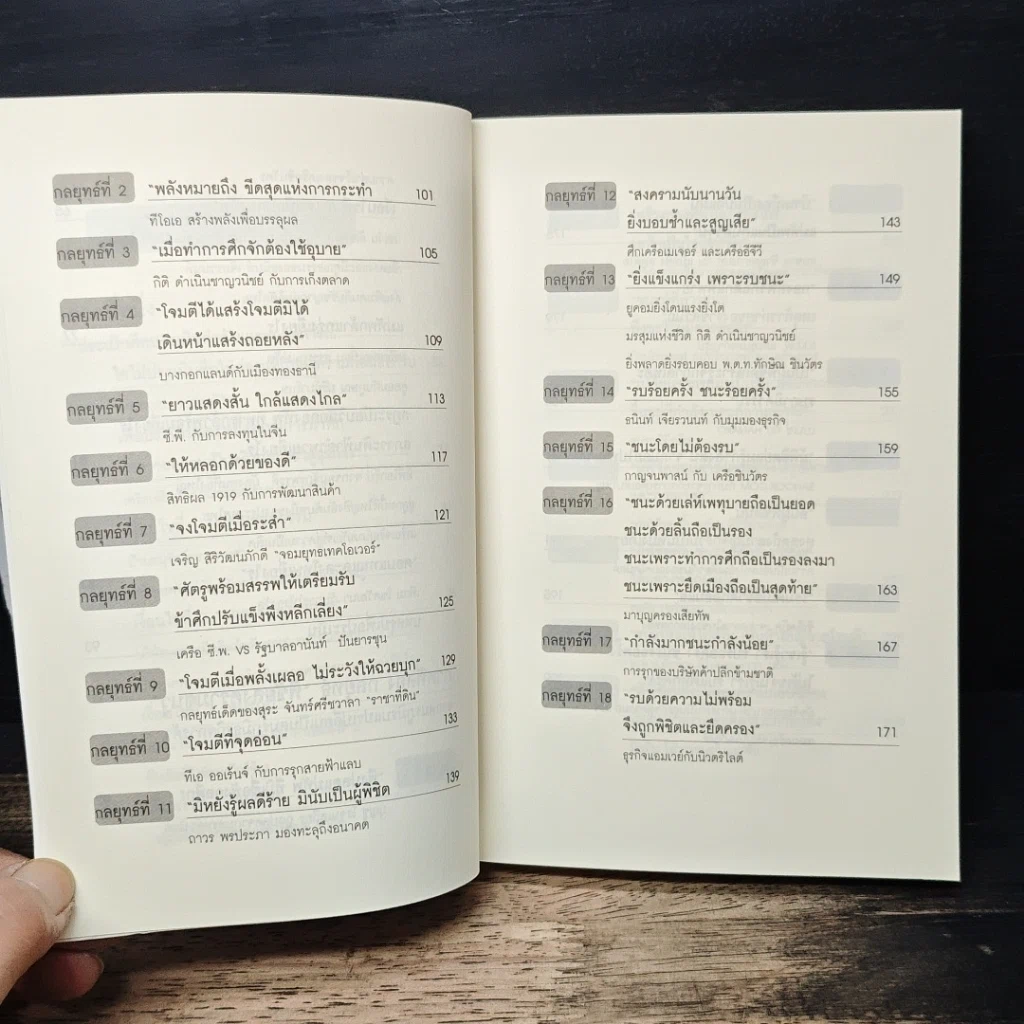 กลยุทธ์ที่ 2 "พลังหมายถึง ขีดสุดแห่งการกระทำ 101
ทีโอเอ สร้างพลังเพื่อบรรลุผล
กลยุทธ์ที่ 3 "เมื่อทำการศึกจักต้องใช้อุบาย" 105
กิติ ดำเนินชาญวนิชย์ กับการเก็งตลาด
กลยุทธ์ที่ 4 "โจมตีได้แสร้งโจมตีมิได้
เดินหน้าแสร้งถอยหลัง" 109
บางกอกแลนด์กับเมืองทองธานี
กลยุทธ์ที่ 5 "ยาวแสดงสั้น ใกล้แสดงไกล" 113
ซี.พี. กับการลงทุนในจีน
กลยุทธ์ที่ 6 "ให้หลอกด้วยของดี" 117
สิทธิผล 1919 กับการพัฒนาสินค้า
กลยุทธ์ที่ 7 "จงโจมตีเมื่อระส่ำ" 121
เจริญ สิริวัฒนภักดี "จอมยุทธเทคโอเวอร์"
กลยุทธ์ที่ 8 "ศัตรูพร้อมสรรพให้เตรียมรับ
ข้าศึกปรับแข็งพึงหลีกเลี่ยง" 125
เครือ ซี.พี. VS รัฐบาลอานันท์ ปันยารชุน
กลยุทธ์ที่ 9 "โจมตีเมื่อพลั้งเผลอ ไม่ระวังให้ฉวยบุก" 129
กลยุทธ์เด็ดของสุระ จันทร์ศรีชวาลา "ราชาที่ดิน"
กลยุทธ์ที่ 10 "โจมตีที่จุดอ่อน" 133
ทีเอ ออเร้นจ์ กับการรุกสายฟ้าแลบ
กลยุทธ์ที่ 11 "มิหยั่งรู้ผลดีร้าย มินับเป็นผู้พิชิต 139
ถาวร พรประภา มองทะลุถึงอนาคต
กลยุทธ์ที่ 12 "สงครามนับนานวัน
ยิ่งบอบช้ำและสูญเสีย" 143
ศึกเครือเมเจอร์ และเครืออีจีวี
กลยุทธ์ที่ 13 "ยิ่งแข็งแกร่ง เพราะรบชนะ" 149
ยูคอมยิ่งโดนแรงยิ่งโต
มรสุมแห่งชีวิต กิติ ดำเนินชาญวนิชย์
ยิ่งพลาดยิ่งรอบคอบ พ.ต.ท.ทักษิณ ชินวัตร
กลยุทธ์ที่ 14 "รบร้อยครั้ง ชนะร้อยครั้ง" 155
ธนินท์ เจียรวนนท์ กับมุมมองธุรกิจ
กลยุทธ์ที่ 15 "ชนะโดยไม่ต้องรบ" 159
กาญจนพาสน์ กับ เครือชินวัตร
กลยุทธ์ที่ 16 "ชนะด้วยเล่ห์เพทุบายถือเป็นยอด
ชนะด้วยลิ้นถือเป็นรอง
ชนะเพราะทำการศึกถือเป็นรองลงมา
ชนะเพราะยึดเมืองถือเป็นสุดท้าย" 163
มาบุญครองเสียทัพ
กลยุทธ์ที่ 17 "กำลังมากชนะกำลังน้อย" 167
การรุกของบริษัทค้าปลีกข้ามชาติ
กลยุทธ์ที่ 18 "รบด้วยความไม่พร้อม
จึงถูกพิชิตและยึดครอง" 171
ธุรกิจแอมเวย์กับนิวตริไลต์